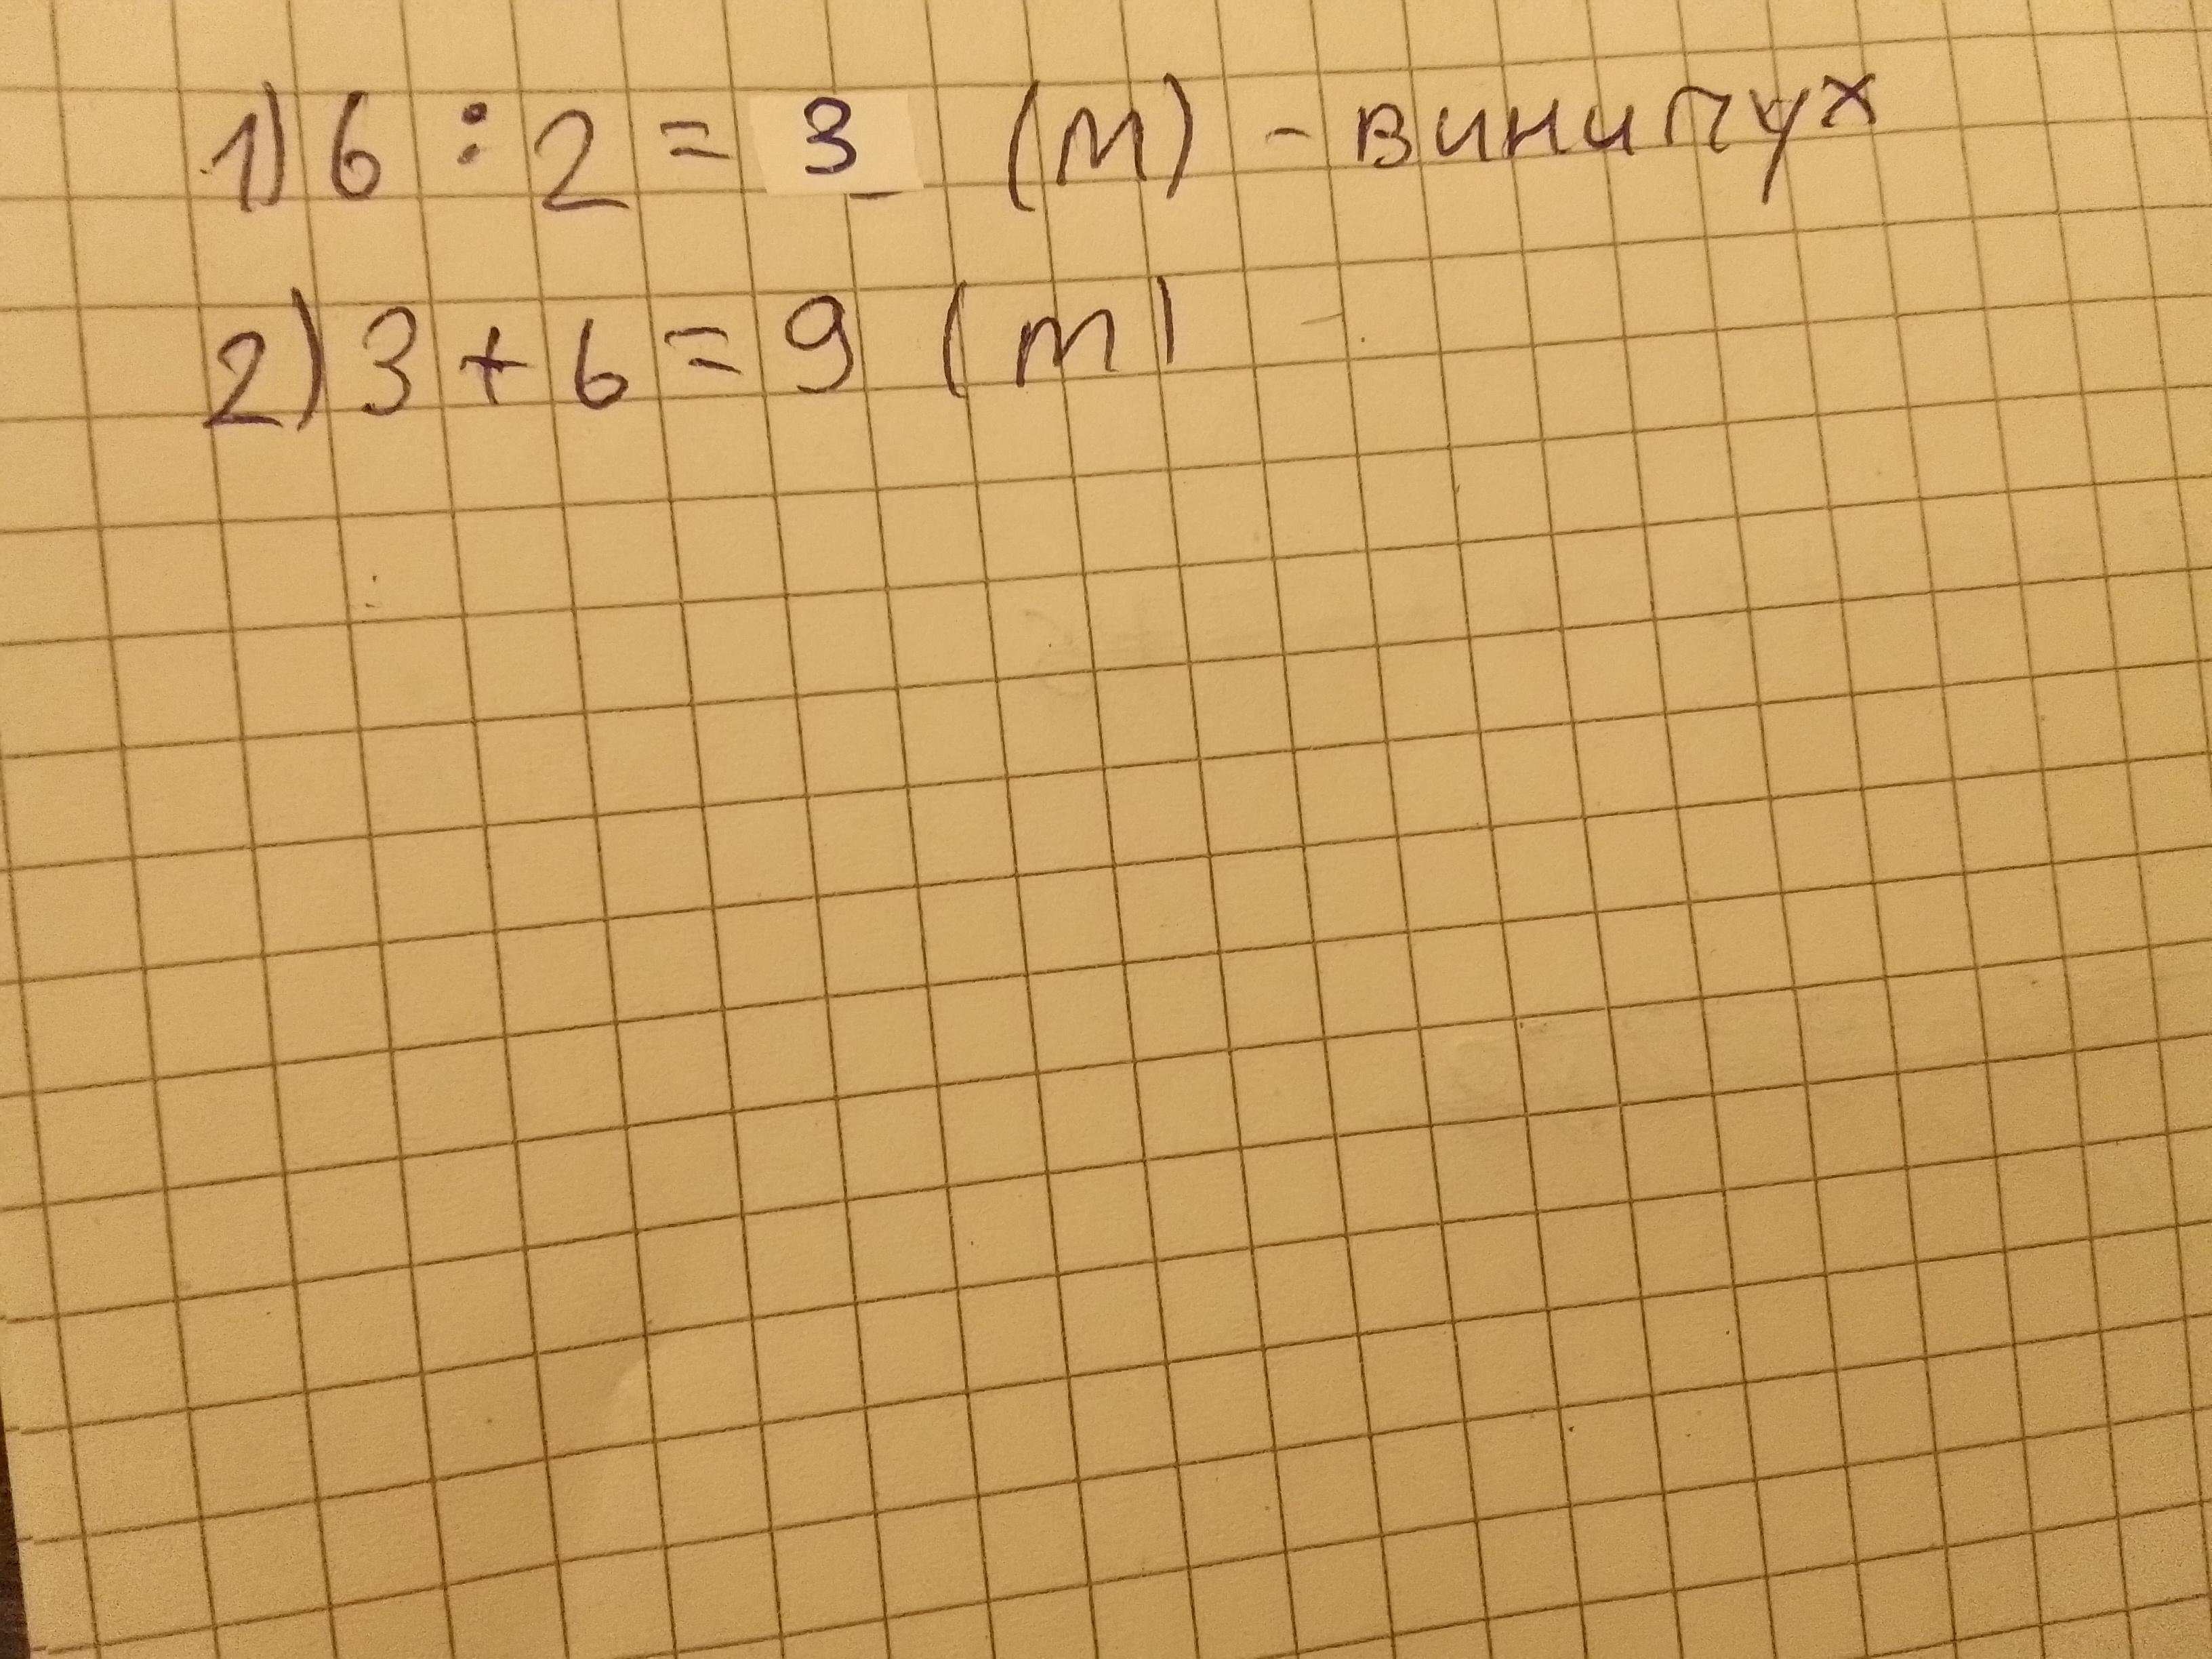 1) 6 : 2 = 3 (м) - винипух
2) 3 + 6 = 9 (м)